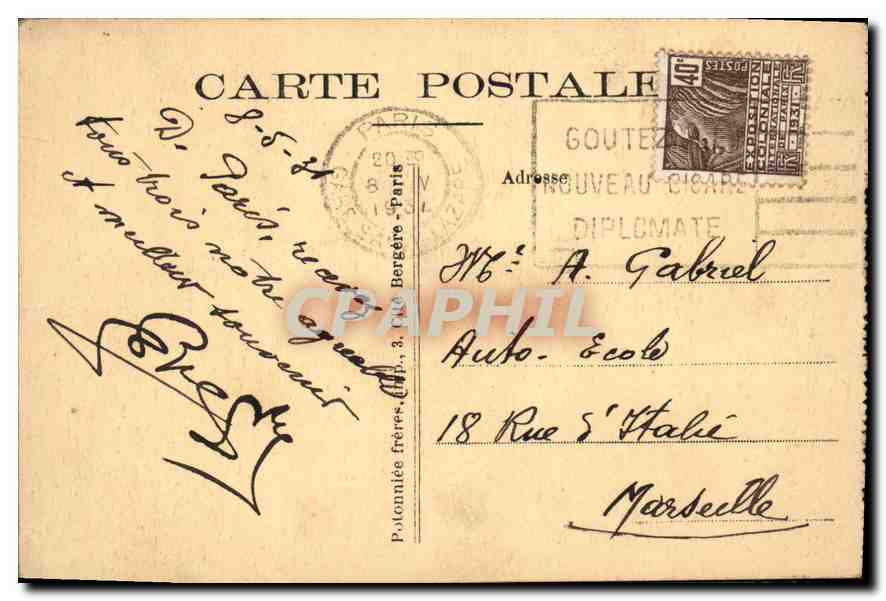 CARTE POSTALE
8-5-31
De Paris, recevez
tous trois notre agréable
et meilleur souvenir
Polonniée frères, Imp., 3, Cité Bergère - Paris
PARIS
GARE ST LAZARE
20
8
1931
GOUTEZ
NOUVEAU CIGARE
DIPLOMATE
40c
POSTES
EXPOSITION
COLONIALE
INTERNATIONALE
PARIS 1931
Adresse
Mr. A. Gabriel
Auto-Ecole
18 Rue d'Italie
Marseille
CPAPHIL